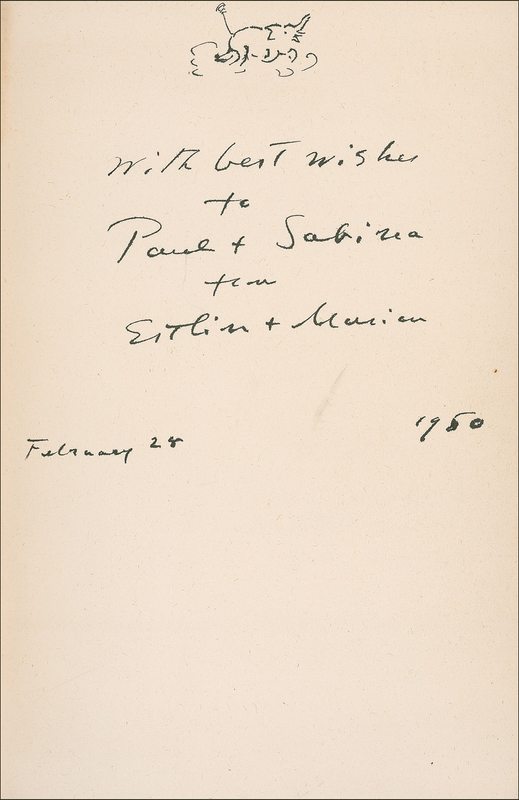 With best wishes
to
Paul + Sabina
from
Estlin + Marion
February 28
1950